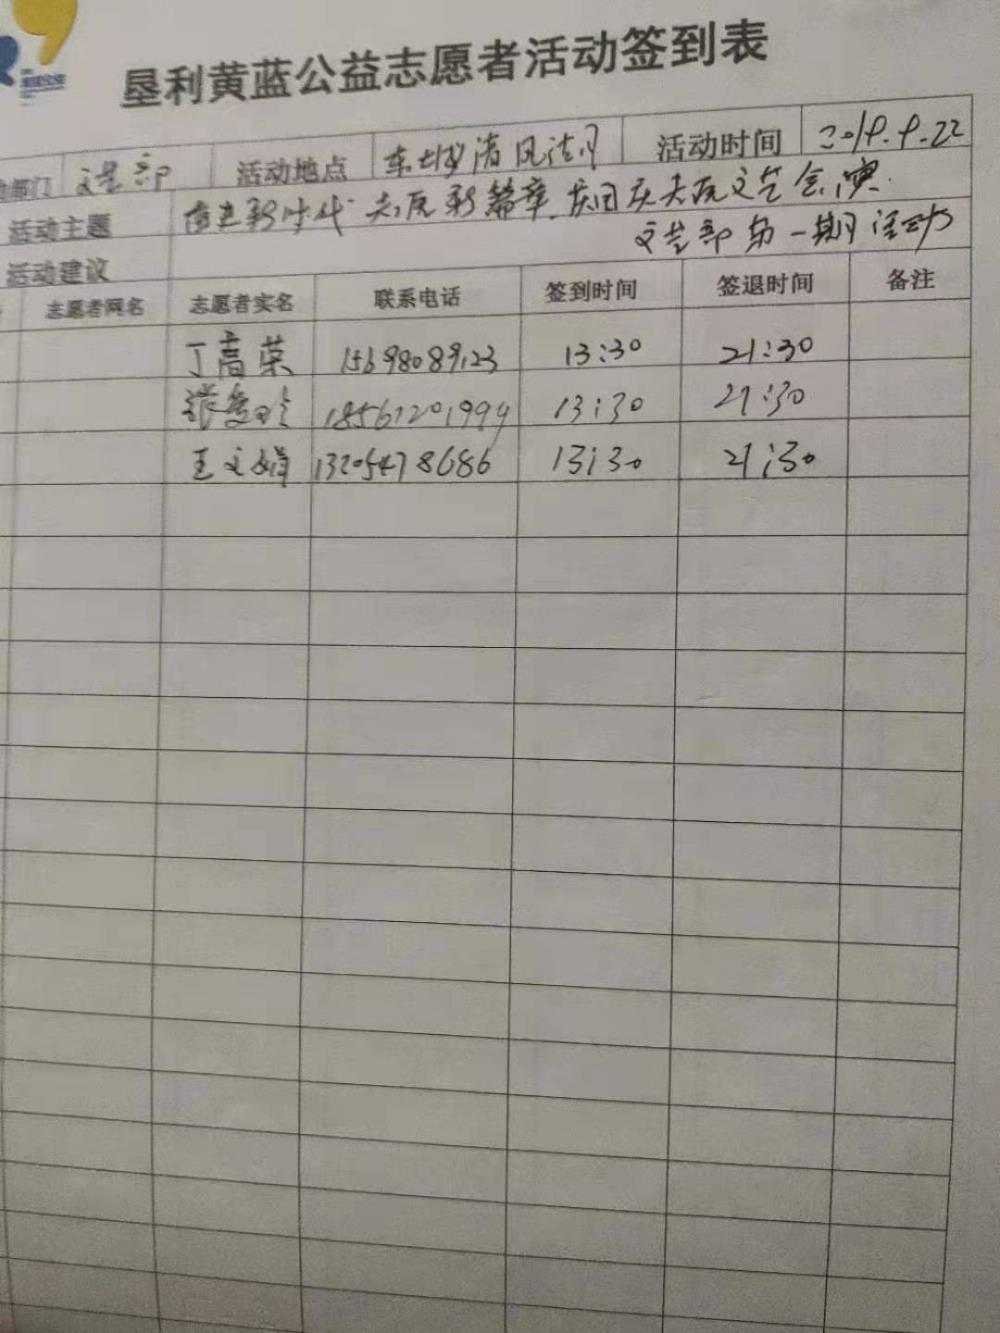 垦利黄蓝公益志愿者活动签到表
部门 文艺部 活动地点 东城清风 活动时间 2019.9.22
活动主题 新时代 大灰新篇章 庆国庆 文艺会演
文艺部第一期活动
活动建议
志愿者网名 志愿者实名 联系电话 签到时间 签退时间 备注
丁高荣 15698089123 13:30 21:30
张 18561201994 13:30 21:30
王文娟 13205478686 13:30 21:30